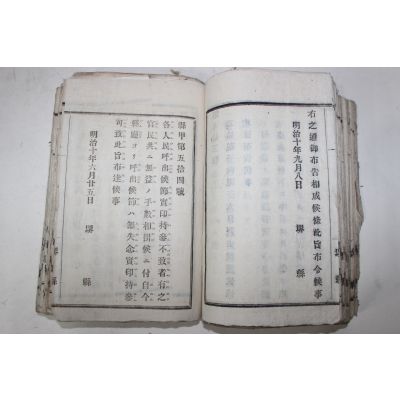 右之通御布告相成候條此旨布令候事
明治十年九月八日
堺縣
縣甲第五拾四號
各人民呼出候節實印持參不致者有之
官民共ニ無益ノ手數相掛候ニ付自今
縣廳ヨリ呼出候節ハ無失念實印持參
可致此旨布達候事
明治十年六月廿五日
堺縣